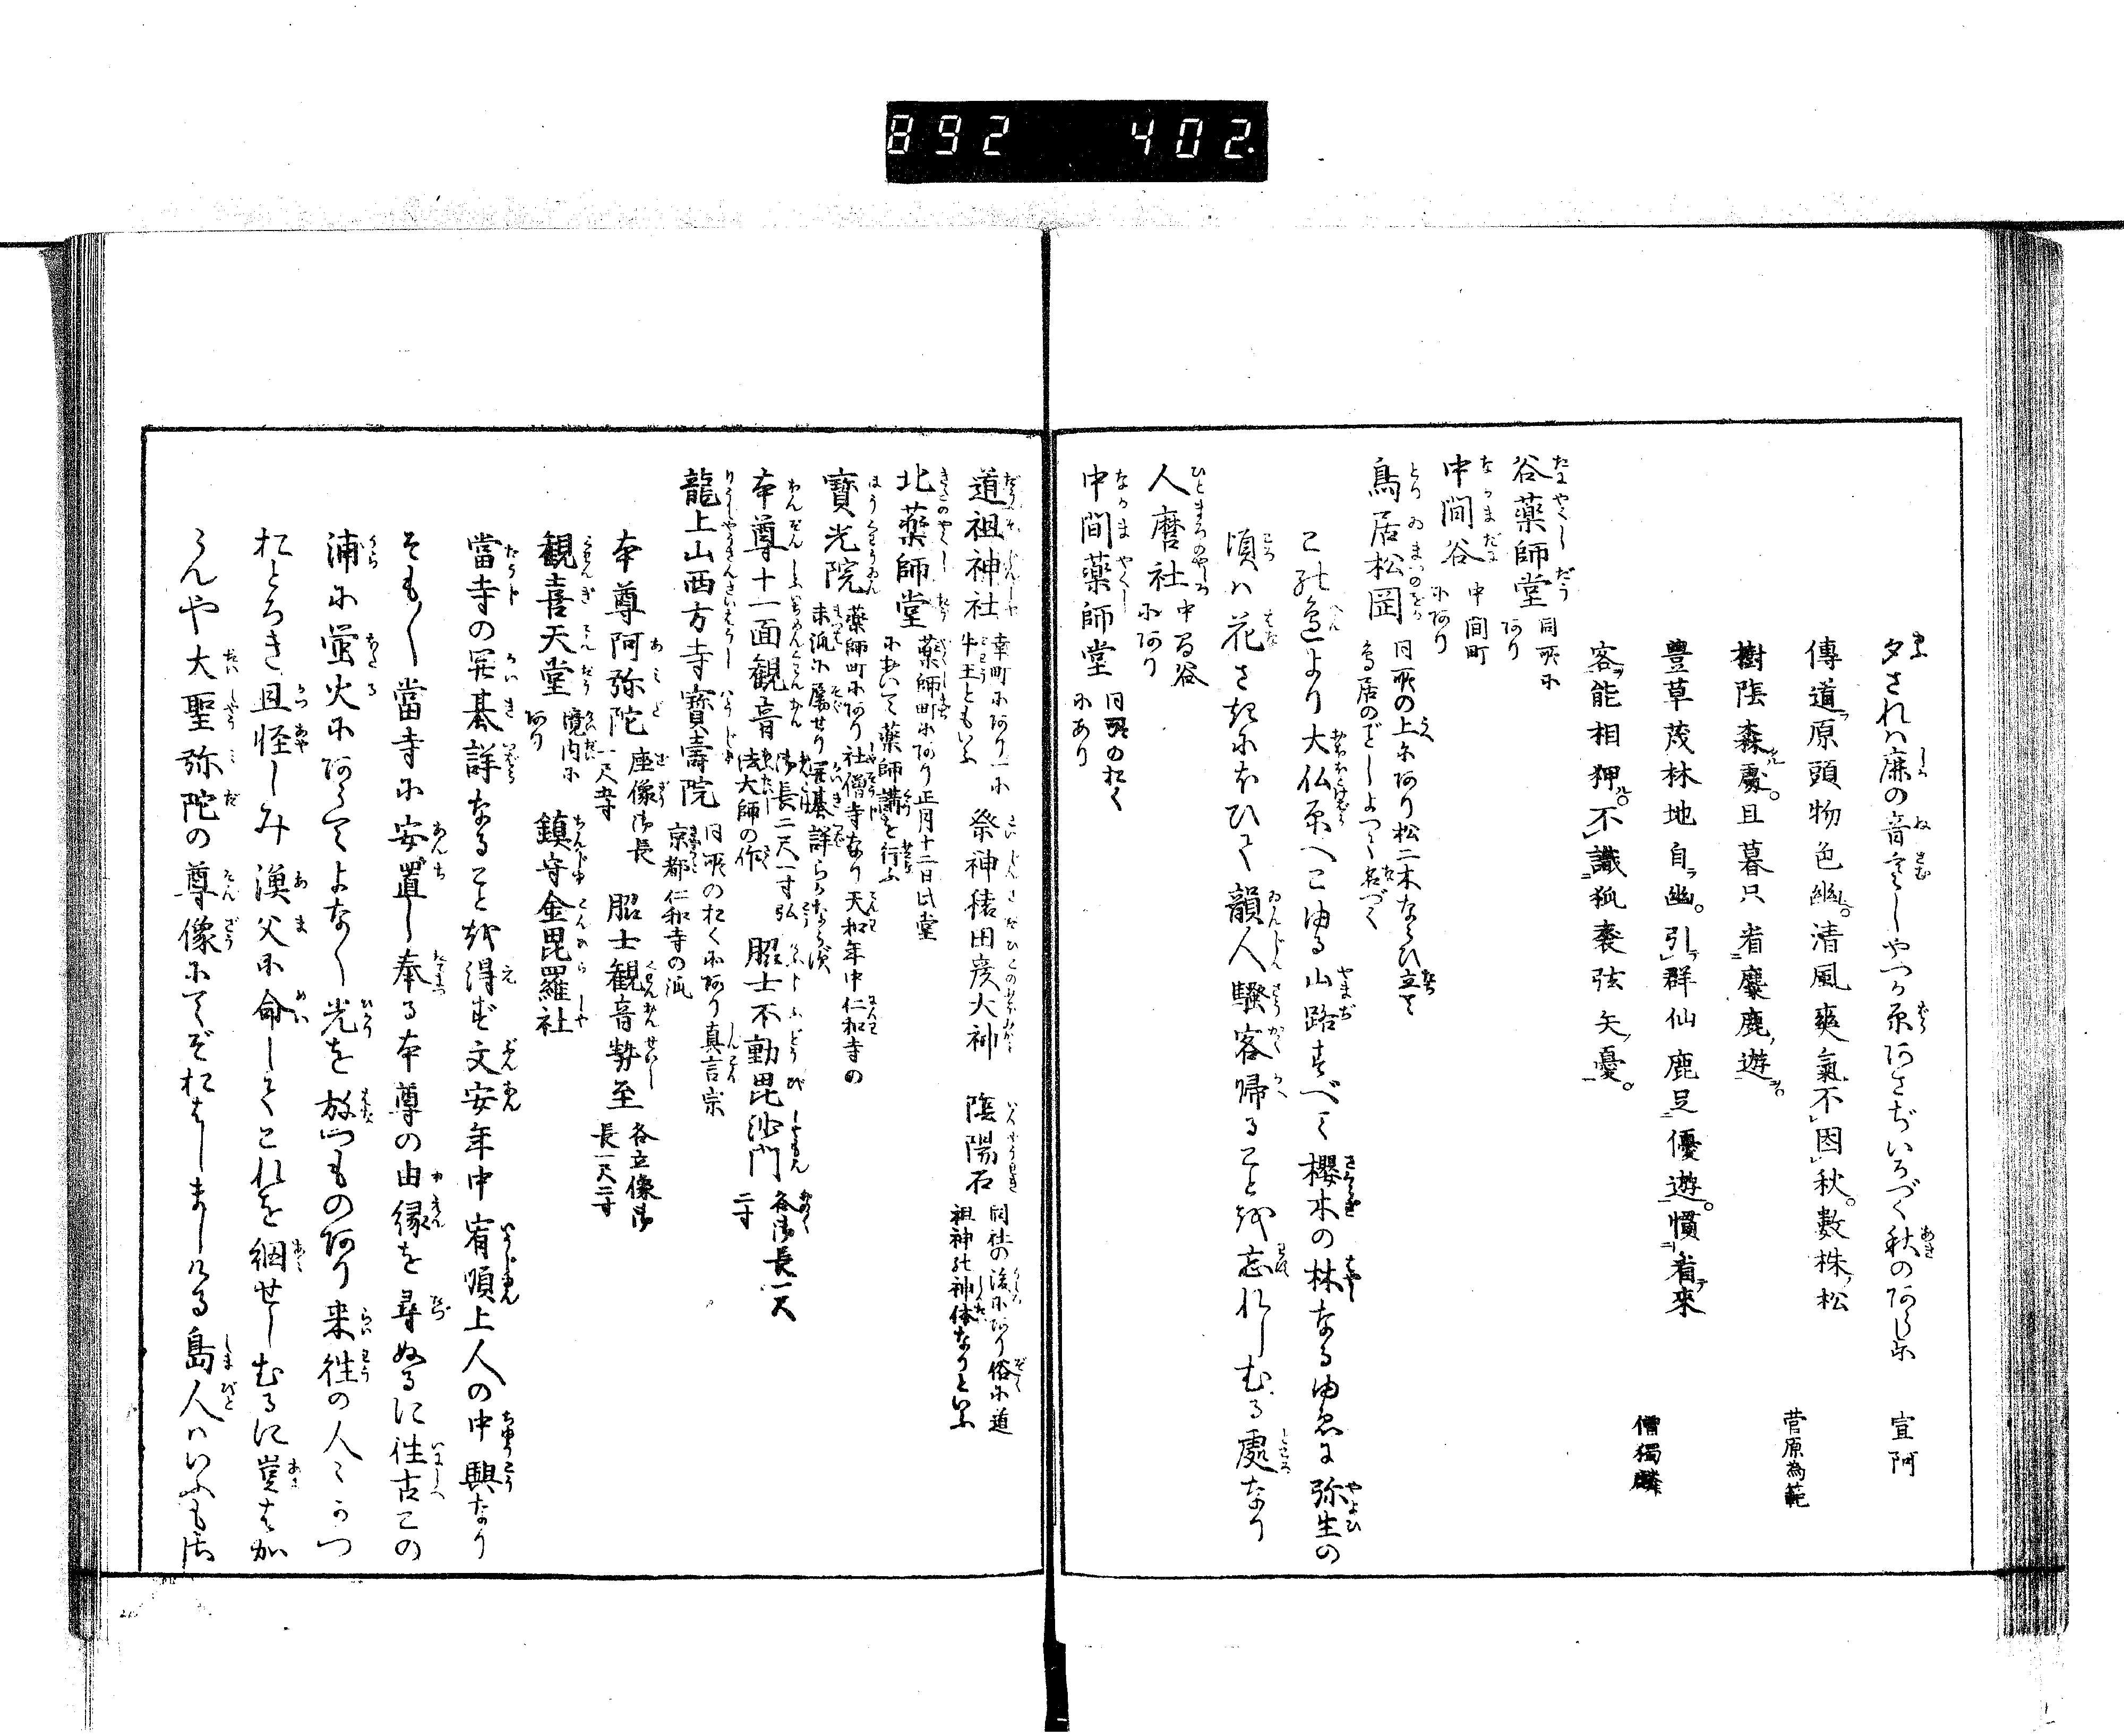 892 402.
夕されハ鹿の音寒しやつり原あさぢいろづく秋のあらしに 宜阿
傳道原頭物色幽清風爽氣不因秋數株松
樹陰森處且暮只看麋鹿遊 菅原為範
豊草茂林地自幽引群仙鹿足優遊慣看来
客能相狎不識狐裘弦矢憂 僧獨麟
谷薬師堂 同所にあり
中間谷 中間町にあり
鳥居松岡 同所の上にあり松二木ならひ立て鳥居のごとしよつて名づく
この邊より大仏原へこゆる山路すべて櫻木の林なるゆゑに弥生の
頃ハ花さきにほひて韻人騒客帰ることを忘れしむる處なり
人麿社 中間谷にあり
中間薬師堂 同所のおくにあり
道祖神社 幸町にあり一に牛王ともいふ 祭神猿田彦大神 陰陽石 同社の後にあり俗に道祖神の神体なりといふ
北薬師堂 薬師町にあり正月十二日此堂において薬師講を行ふ
寶光院 薬師町にあり社僧寺なり天和年中仁和寺の末派に属せり開基詳らかならず
本尊十一面観音 御長二尺一寸弘法大師の作 脇士不動毘沙門 各御長一尺二寸
龍上山西方寺寶壽院 同所のおくにあり真言宗京都仁和寺の派
本尊阿弥陀 座像御長一尺五寸 脇士観音勢至 各立像御長一尺二寸
観喜天堂 境内にあり 鎮守金毘羅社
當寺の開基詳なることを得ず文安年中宥順上人の中興なり
そも〳〵當寺に安置し奉る本尊の由縁を尋ぬるに往古この
浦に蛍火にあらでよな〳〵光を放つものあり来往の人々かつ
おどろき且怪しみ漁父に命じてこれを網せしむるに豈はか
らんや大聖弥陀の尊像にてぞおはしましける島人ハいふもさら